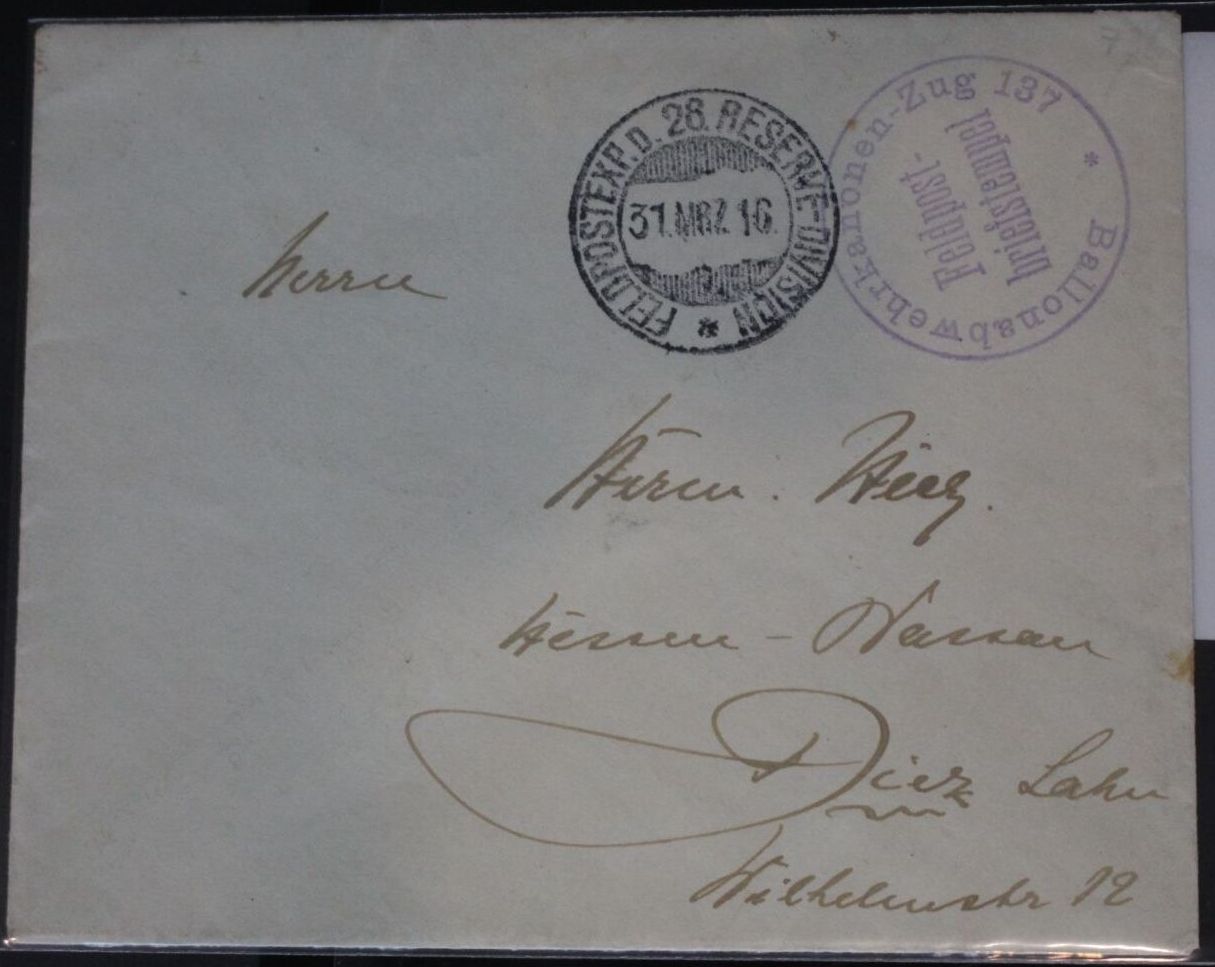 FELDPOSTEXP. D. 26. RESERVE-DIVISION *
31.MRZ.16.
Ballonabwehrkanonen-Zug 137 *
Feldpost-
briefstempel
Herrn
Herrn.
Hessen - Nassau
Diez Lahn
Wilhelmstr 12